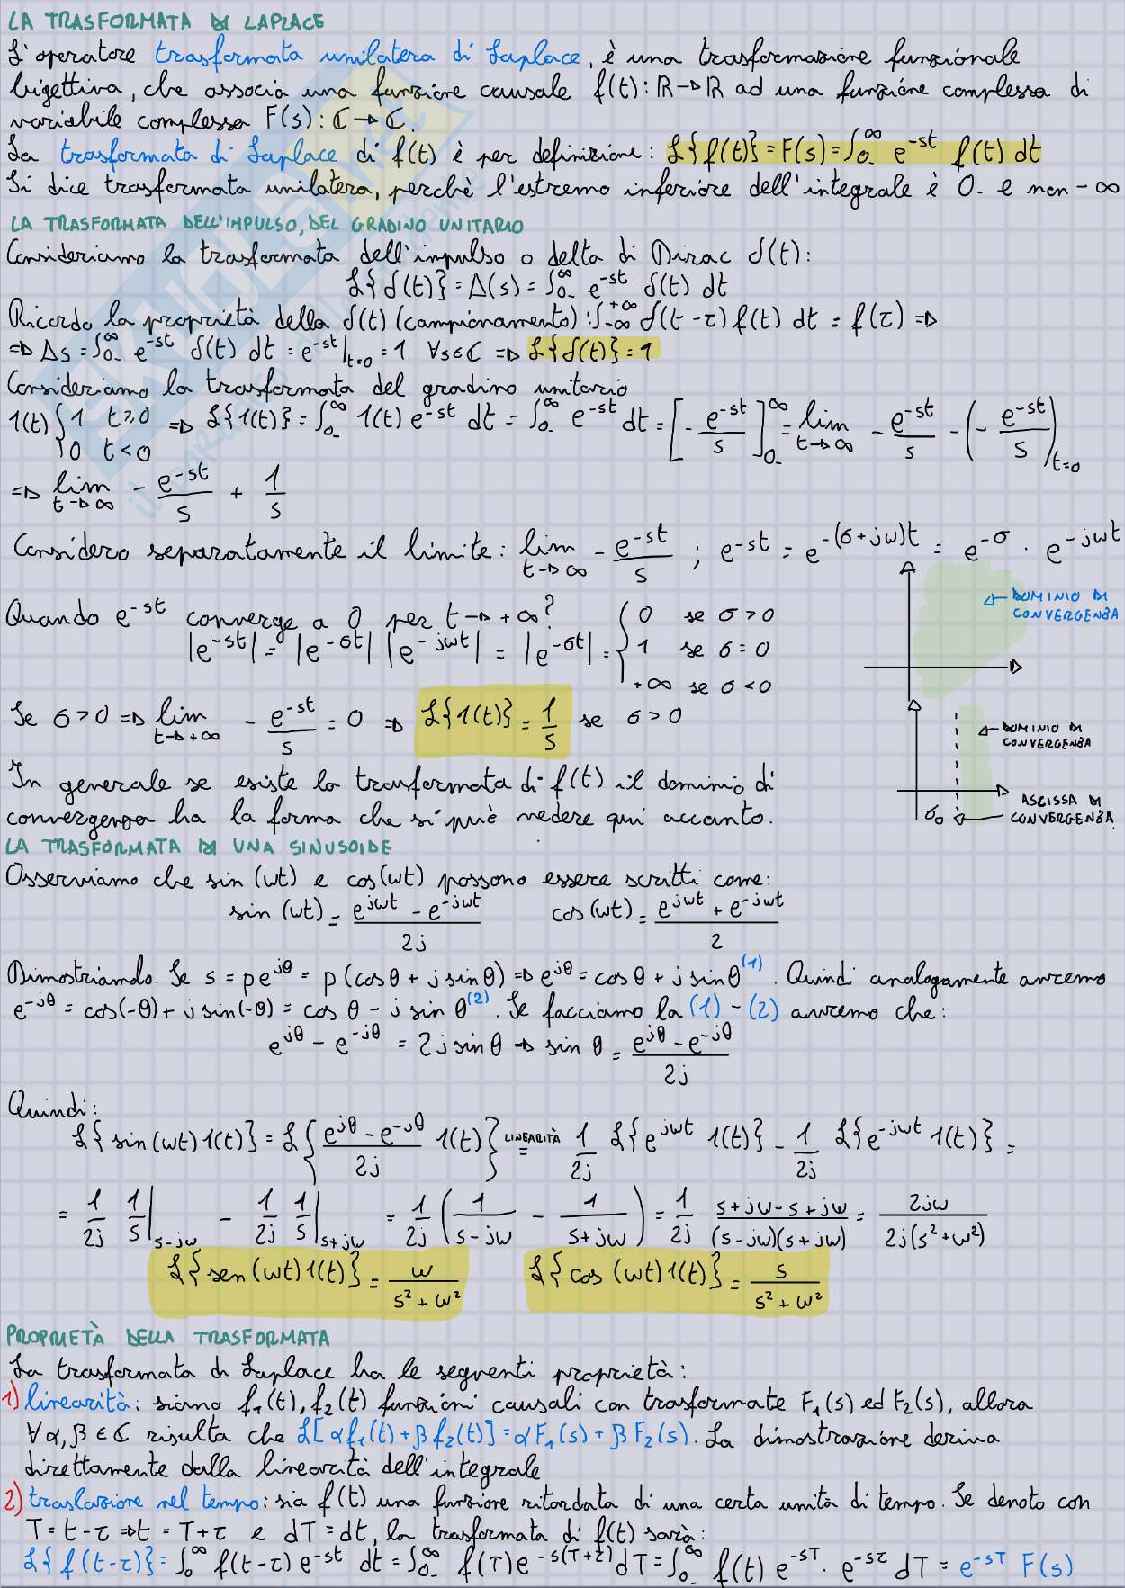 LA TRASFORMATA DI LAPLACE
L'operatore trasformata unilatera di Laplace, è una trasformazione funzionale
bigettiva, che associa una funzione causale f(t): ℝ→ℝ ad una funzione complessa di
variabile complessa F(s): ℂ→ℂ.
La trasformata di Laplace di f(t) è per definizione: ℒ{f(t)} = F(s) = ∫₀₋^∞ e^-st f(t) dt
Si dice trasformata unilatera, perchè l'estremo inferiore dell'integrale è 0- e non -∞
LA TRASFORMATA DELL'IMPULSO, DEL GRADINO UNITARIO
Consideriamo la trasformata dell'impulso o delta di Dirac δ(t):
ℒ{δ(t)} = Δ(s) = ∫₀₋^∞ e^-st δ(t) dt
Ricordo la proprietà della δ(t) (campionamento): ∫-∞^+∞ δ(t-τ) f(t) dt = f(τ) =>
=> Δs = ∫₀₋^∞ e^-st δ(t) dt = e^-st|t=0 = 1 ∀s∈ℂ => ℒ{δ(t)} = 1
Consideriamo la trasformata del gradino unitario
1(t) {1 t≥0 0 t<0 => ℒ{1(t)} = ∫₀₋^∞ 1(t) e^-st dt = ∫₀₋^∞ e^-st dt = [- e^-st/s]₀₋^∞ = lim t→∞ - e^-st/s - (- e^-st/s) t=0
=> lim t→∞ - e^-st/s + 1/s
Considero separatamente il limite: lim t→∞ - e^-st/s ; e^-st = e^-(σ+jω)t = e^-σ · e^-jωt
DOMINIO DI
CONVERGENZA
Quando e^-st converge a 0 per t→+∞?
|e^-st| = |e^-σt| |e^-jωt| = |e^-σt| = {0 se σ>0
1 se σ=0
+∞ se σ<0
Se σ>0 => lim t→+∞ - e^-st/s = 0 => ℒ{1(t)} = 1/s se σ>0
DOMINIO DI
CONVERGENZA
In generale se esiste la trasformata di f(t) il dominio di
convergenza ha la forma che si può vedere qui accanto.
σ₀
ASCISSA DI
CONVERGENZA
LA TRASFORMATA DI UNA SINUSOIDE
Osserviamo che sin(ωt) e cos(ωt) possono essere scritti come:
sin(ωt) = (e^jωt - e^-jωt)/2j cos(ωt) = (e^jωt + e^-jωt)/2
Dimostriamolo Se s = pe^jθ = p(cosθ + j sinθ) => e^jθ = cosθ + j sinθ (1). Quindi analogamente avremo
e^-jθ = cos(-θ) + j sin(-θ) = cos θ - j sin θ (2). Se facciamo la (1) - (2) avremo che:
e^jθ - e^-jθ = 2j sinθ → sin θ = (e^jθ - e^-jθ)/2j
Quindi:
ℒ{sin(ωt)1(t)} = ℒ{(e^jθ - e^-jθ)/2j 1(t)} LINEARITÀ = 1/2j ℒ{e^jωt 1(t)} - 1/2j ℒ{e^-jωt 1(t)} =
= 1/2j 1/s|s-jω - 1/2j 1/s|s+jω = 1/2j (1/(s-jω) - 1/(s+jω)) = 1/2j (s+jω-s+jω)/((s-jω)(s+jω)) = 2jω/(2j(s²+ω²))
ℒ{sen(ωt)1(t)} = ω/(s²+ω²) ℒ{cos(ωt)1(t)} = s/(s²+ω²)
PROPRIETÀ DELLA TRASFORMATA
La trasformata di Laplace ha le seguenti proprietà:
1) linearità: siano f₁(t), f₂(t) funzioni causali con trasformate F₁(s) ed F₂(s), allora
∀α,β∈ℂ risulta che ℒ[αf₁(t)+βf₂(t)] = αF₁(s)+βF₂(s). La dimostrazione deriva
direttamente dalla linearità dell'integrale
2) traslazione nel tempo: sia f(t) una funzione ritardata di una certa unità di tempo. Se denoto con
T = t-τ => t = T+τ e dT = dt, la trasformata di f(t) sarà:
ℒ{f(t-τ)} = ∫₀^∞ f(t-τ) e^-st dt = ∫₀₋^∞ f(T) e^-s(T+τ) dT = ∫₀₋^∞ f(t) e^-sT · e^-sτ dT = e^-sT F(s)